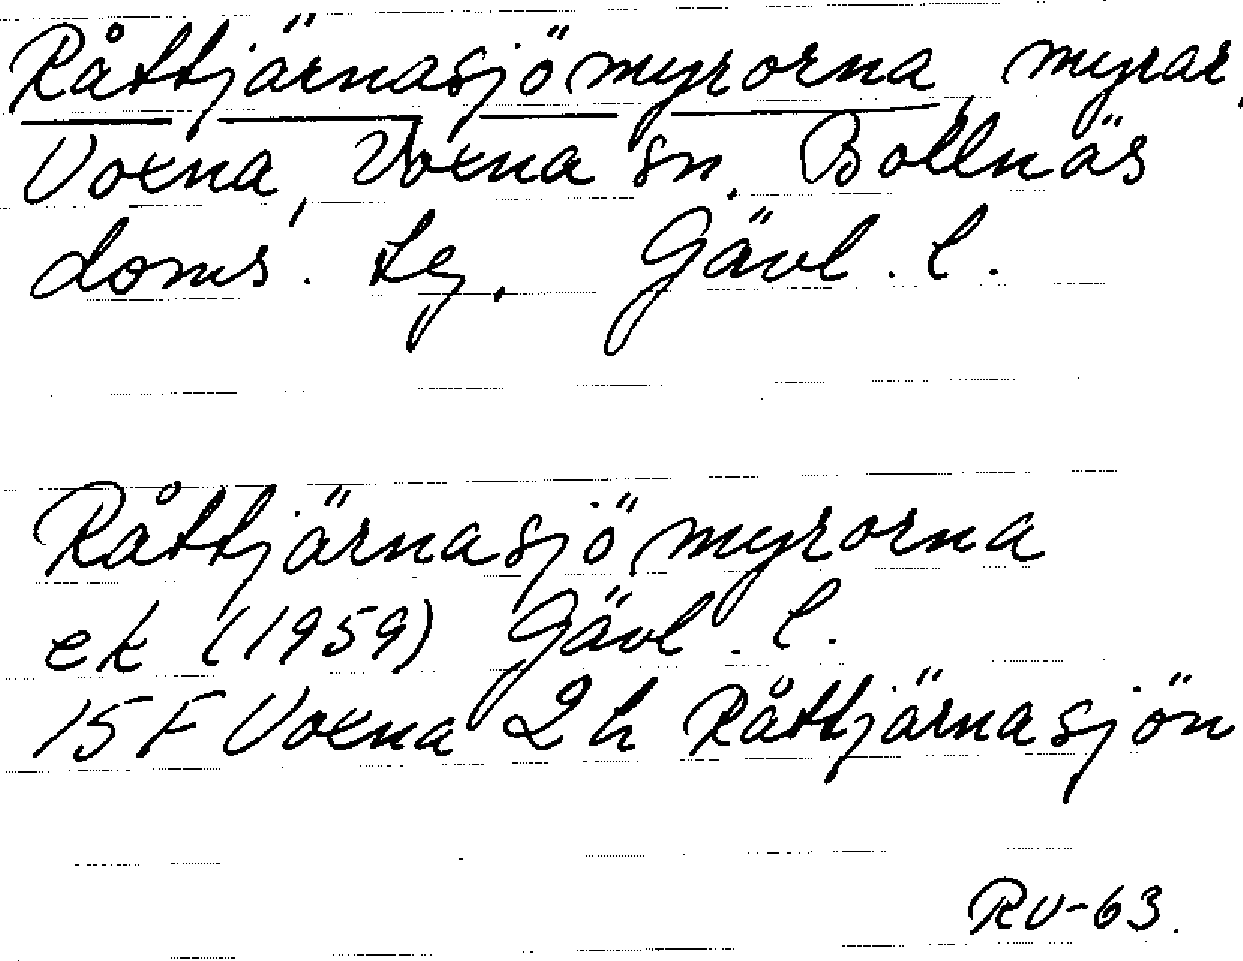 Råttjärnasjömyrorna, myrar,
Voxna, Voxna sn. Bollnäs
doms. tg. Gävl. l.
Råttjärnasjömyrorna
ek (1959) Gävl. l.
15 F Voxna 2 h Råttjärnasjön
RV-63.